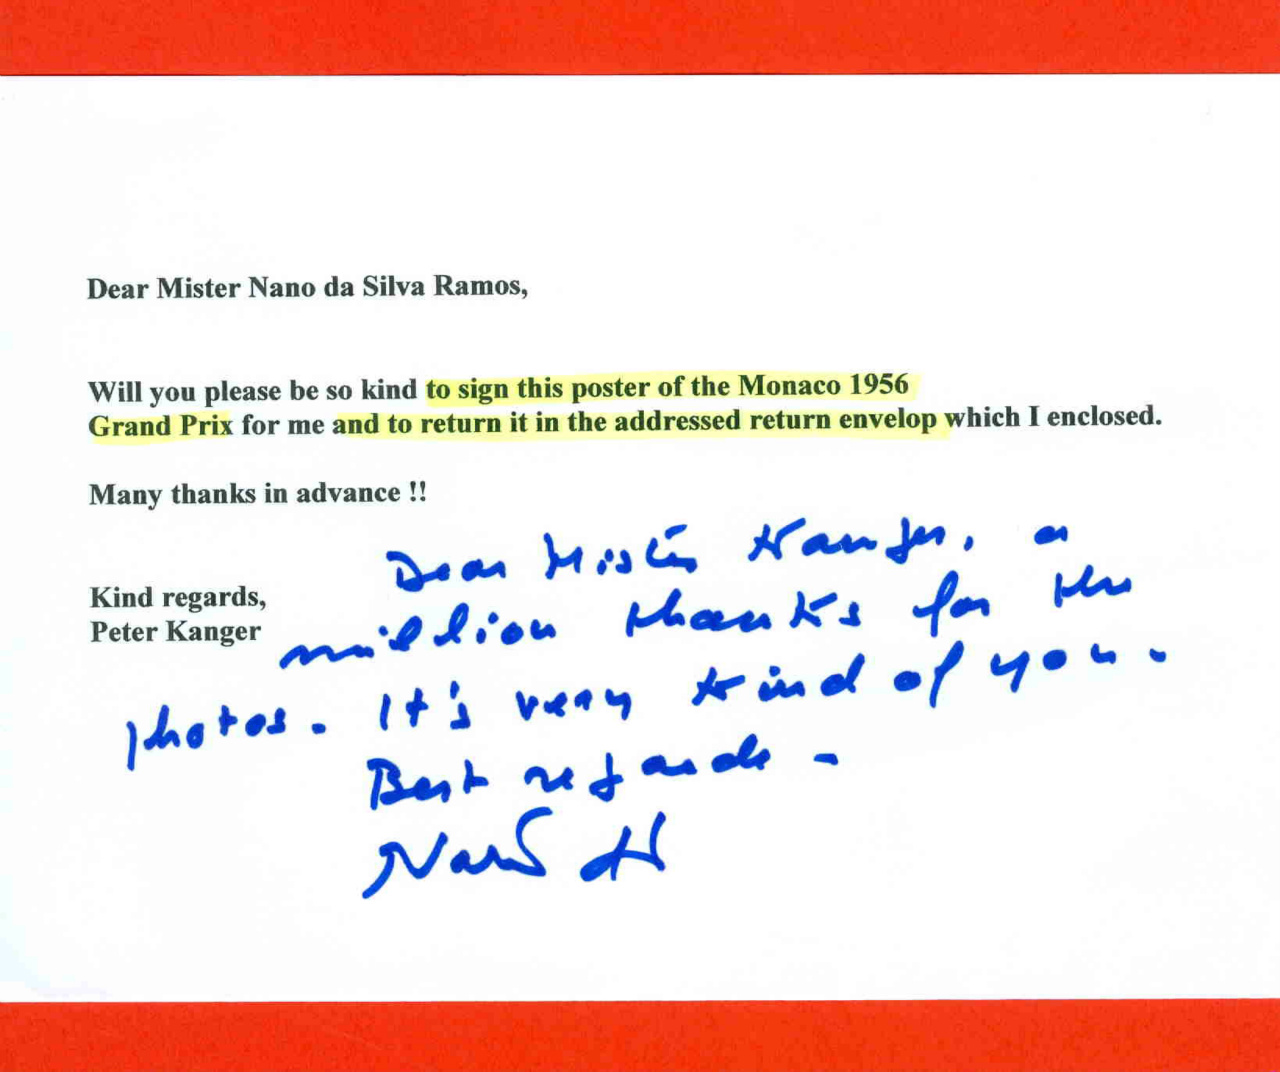 Dear Mister Nano da Silva Ramos,
Will you please be so kind to sign this poster of the Monaco 1956
Grand Prix for me and to return it in the addressed return envelop which I enclosed.
Many thanks in advance !!
Kind regards,
Peter Kanger
Dear Mister Kanger, a
million thanks for the
photos. It's very kind of you.
Best regards -
Nano